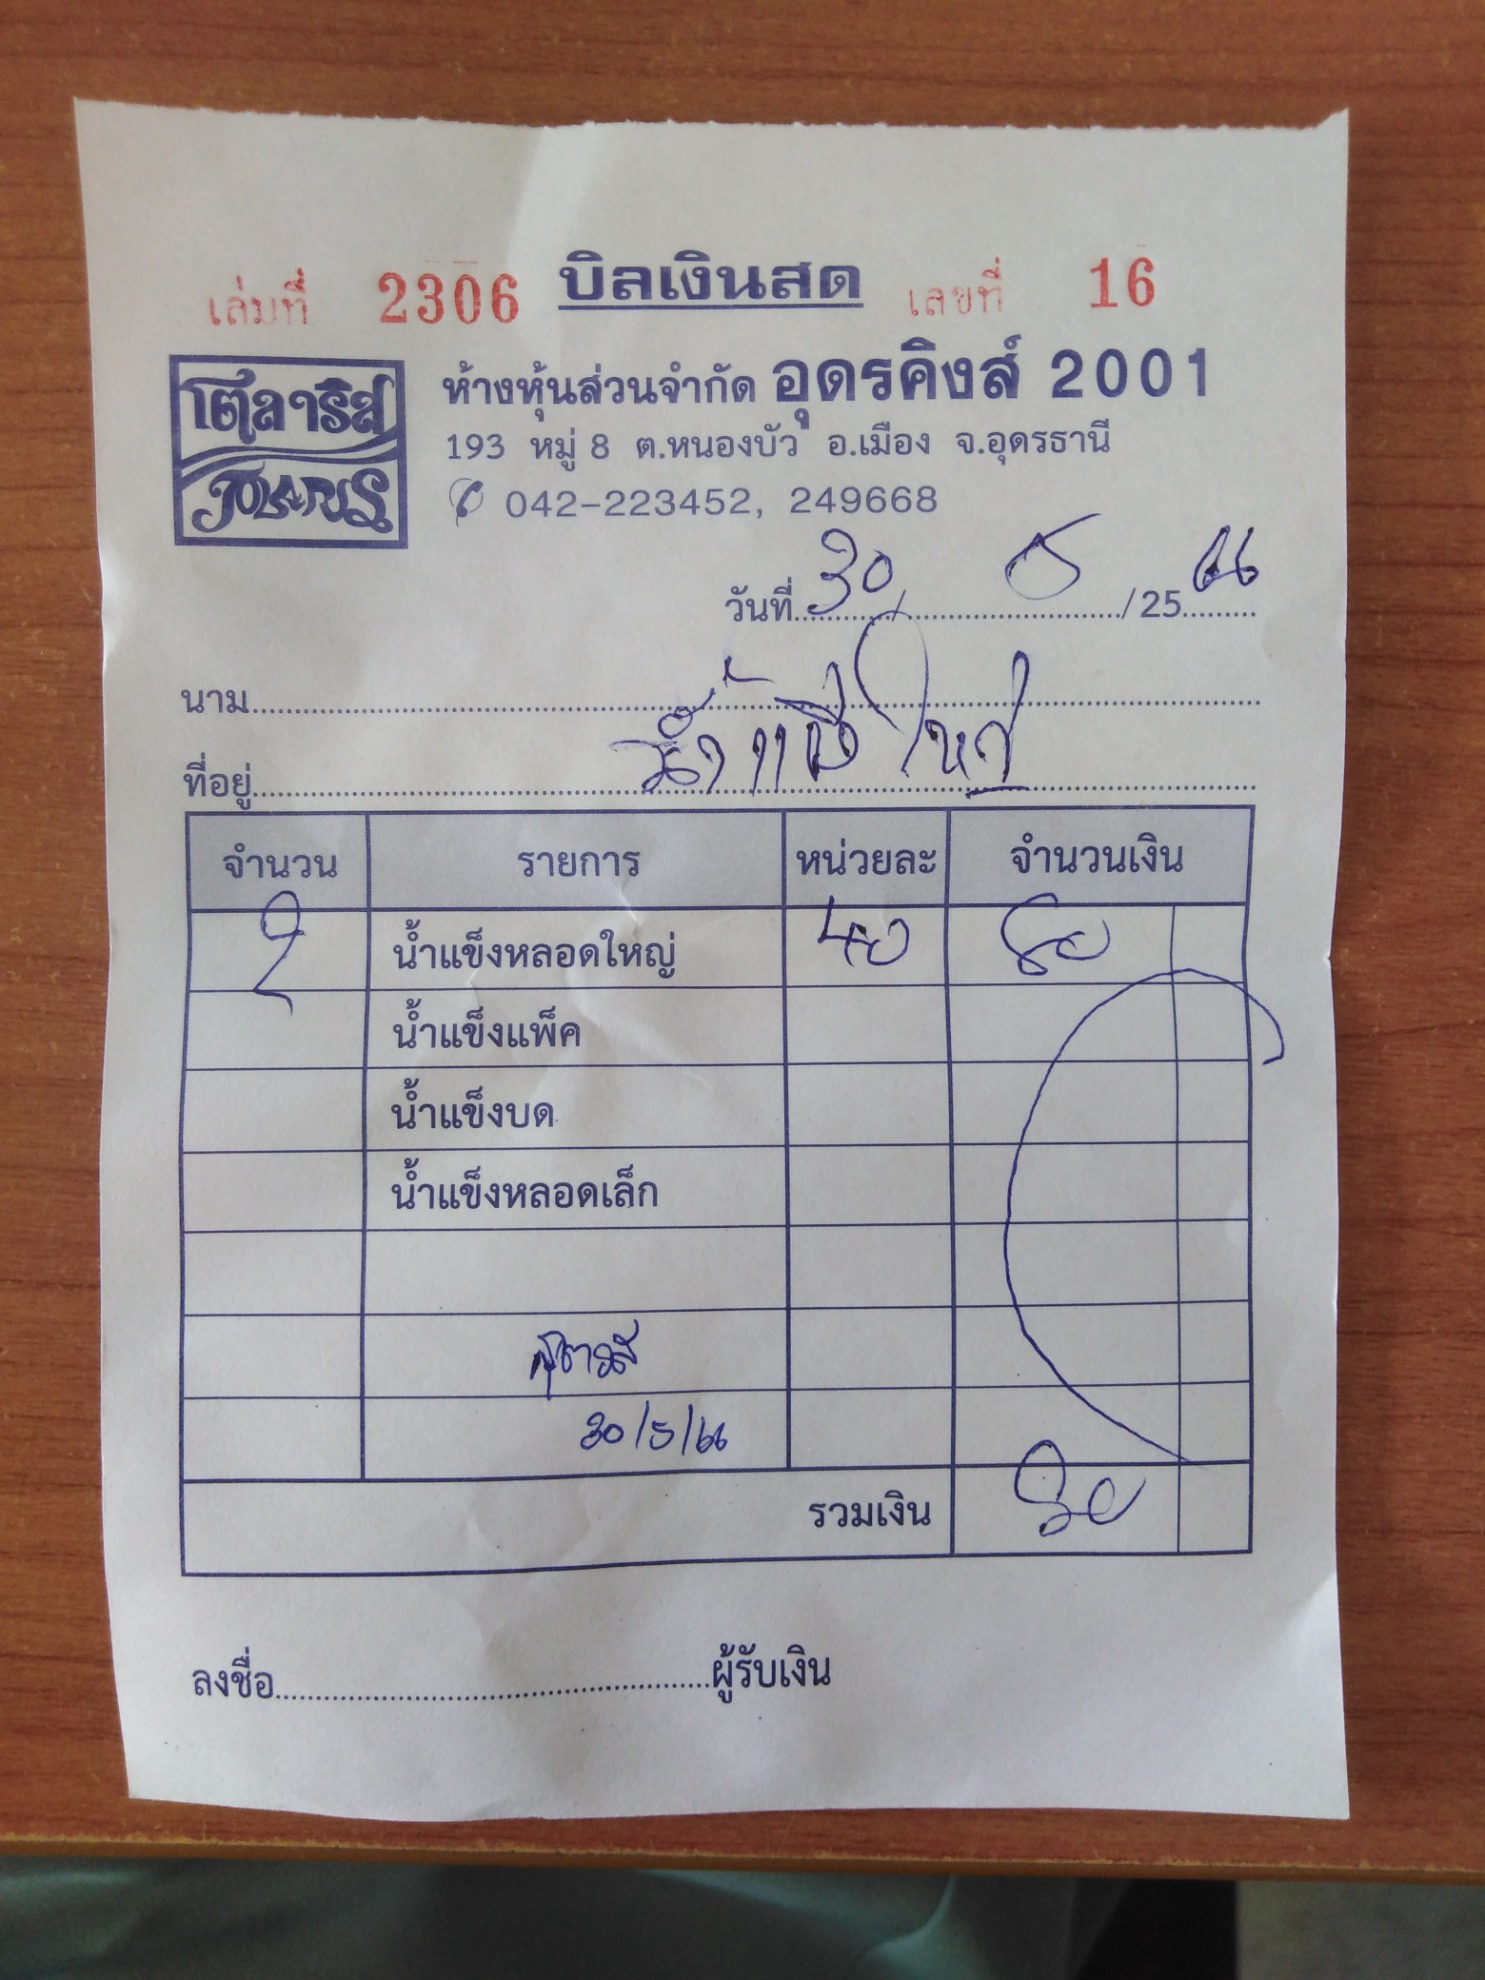 เล่มที่ 2306 บิลเงินสด เลขที่ 16
โตลาริส
TOLARIS
ห้างหุ้นส่วนจำกัด อุดรคิงส์ 2001
193 หมู่ 8 ต.หนองบัว อ.เมือง จ.อุดรธานี
042-223452, 249668
วันที่ 30 / 5 / 2566
นาม
ที่อยู่
จำนวน รายการ หน่วยละ จำนวนเงิน
2 น้ำแข็งหลอดใหญ่ 40 80
น้ำแข็งแพ็ค
น้ำแข็งบด
น้ำแข็งหลอดเล็ก
30/5/66
รวมเงิน 80
ลงชื่อ ผู้รับเงิน